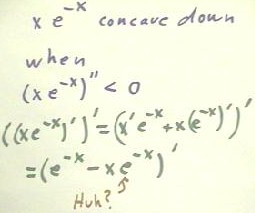 x e^-x concave down
when
(x e^-x)'' < 0
((xe^-x)')' = (x'e^-x + x(e^-x)')'
= (e^-x - xe^-x)'
Huh? ↑